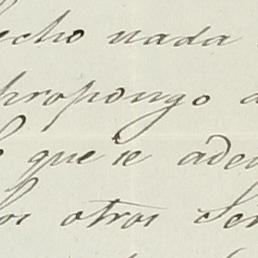 echo nada
propongo a
que se ade
os otros Ser